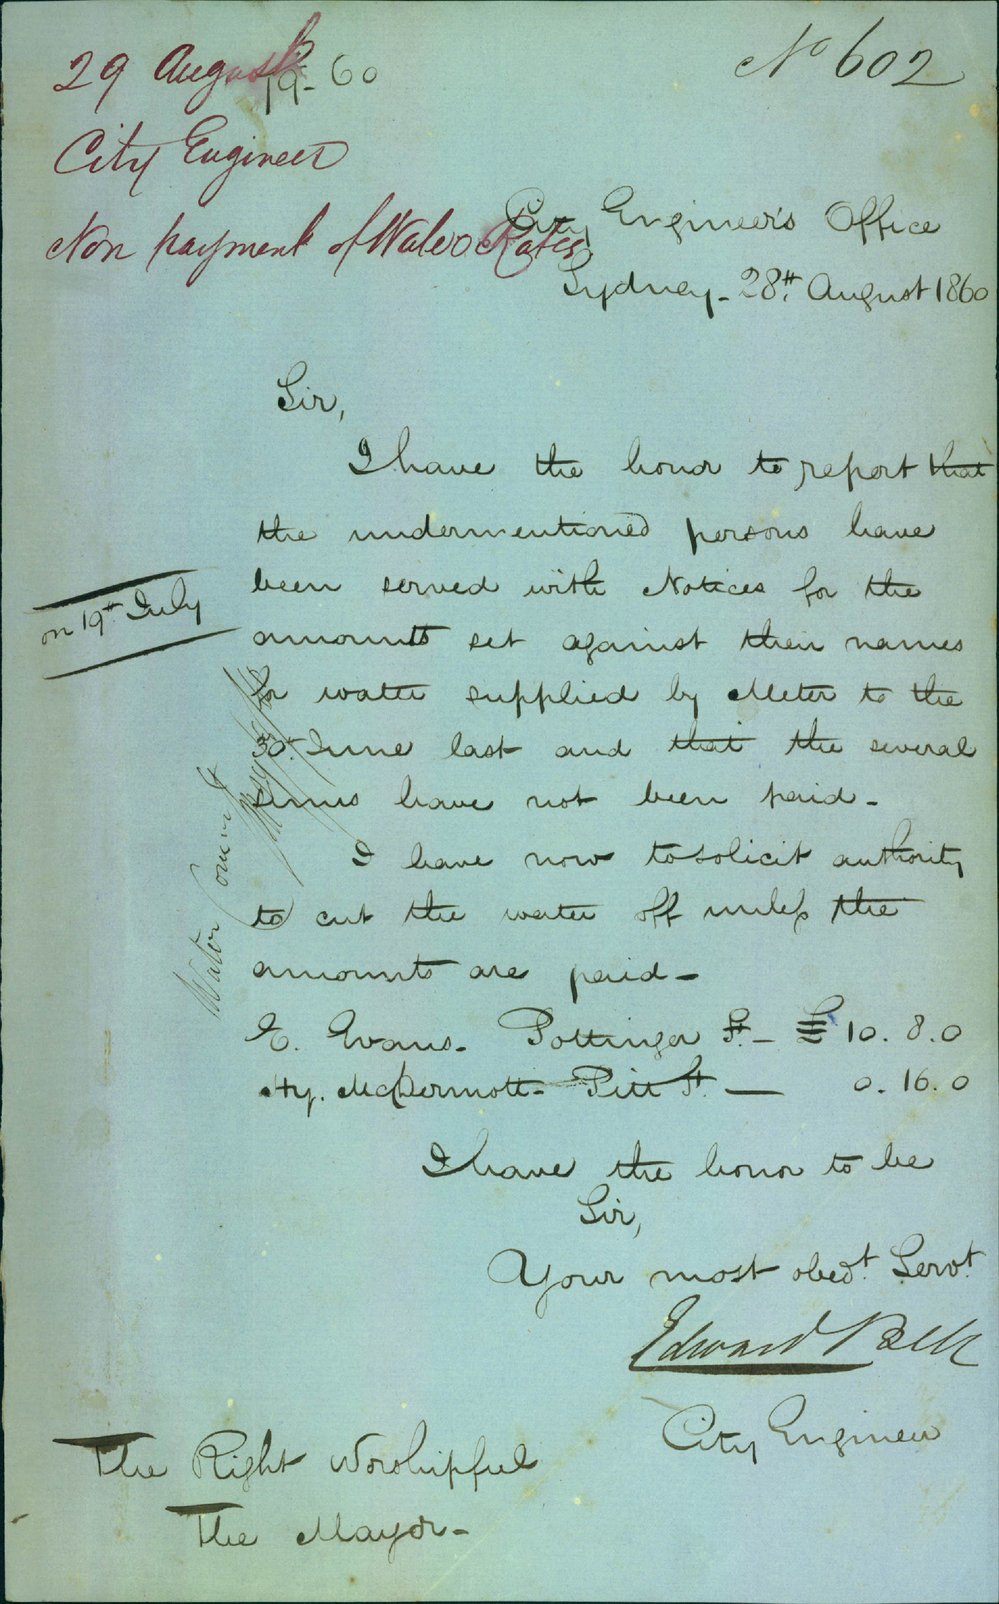 29 August
19-60
No 602
City Engineer
Non payment of Water Rates
City Engineer's Office
Sydney - 28th. August 1860
Sir,
I have the honor to report that
the undermentioned persons have
been served with Notices for the
on 19th July
amounts set against their names
for water supplied by Meter to the
30th June last and that the several
sums have not been paid -
I have now to solicit authority
to cut the water off unless the
amounts are paid -
Water Committ
E. Evans - Pottinger St. - £ 10. 8. 0
Hy. McDermott - Pitt St. - 0. 16. 0
I have the honor to be
Sir,
Your most obedt. Servt.
Edward Bell
City Engineer
The Right Worshipful
The Mayor -